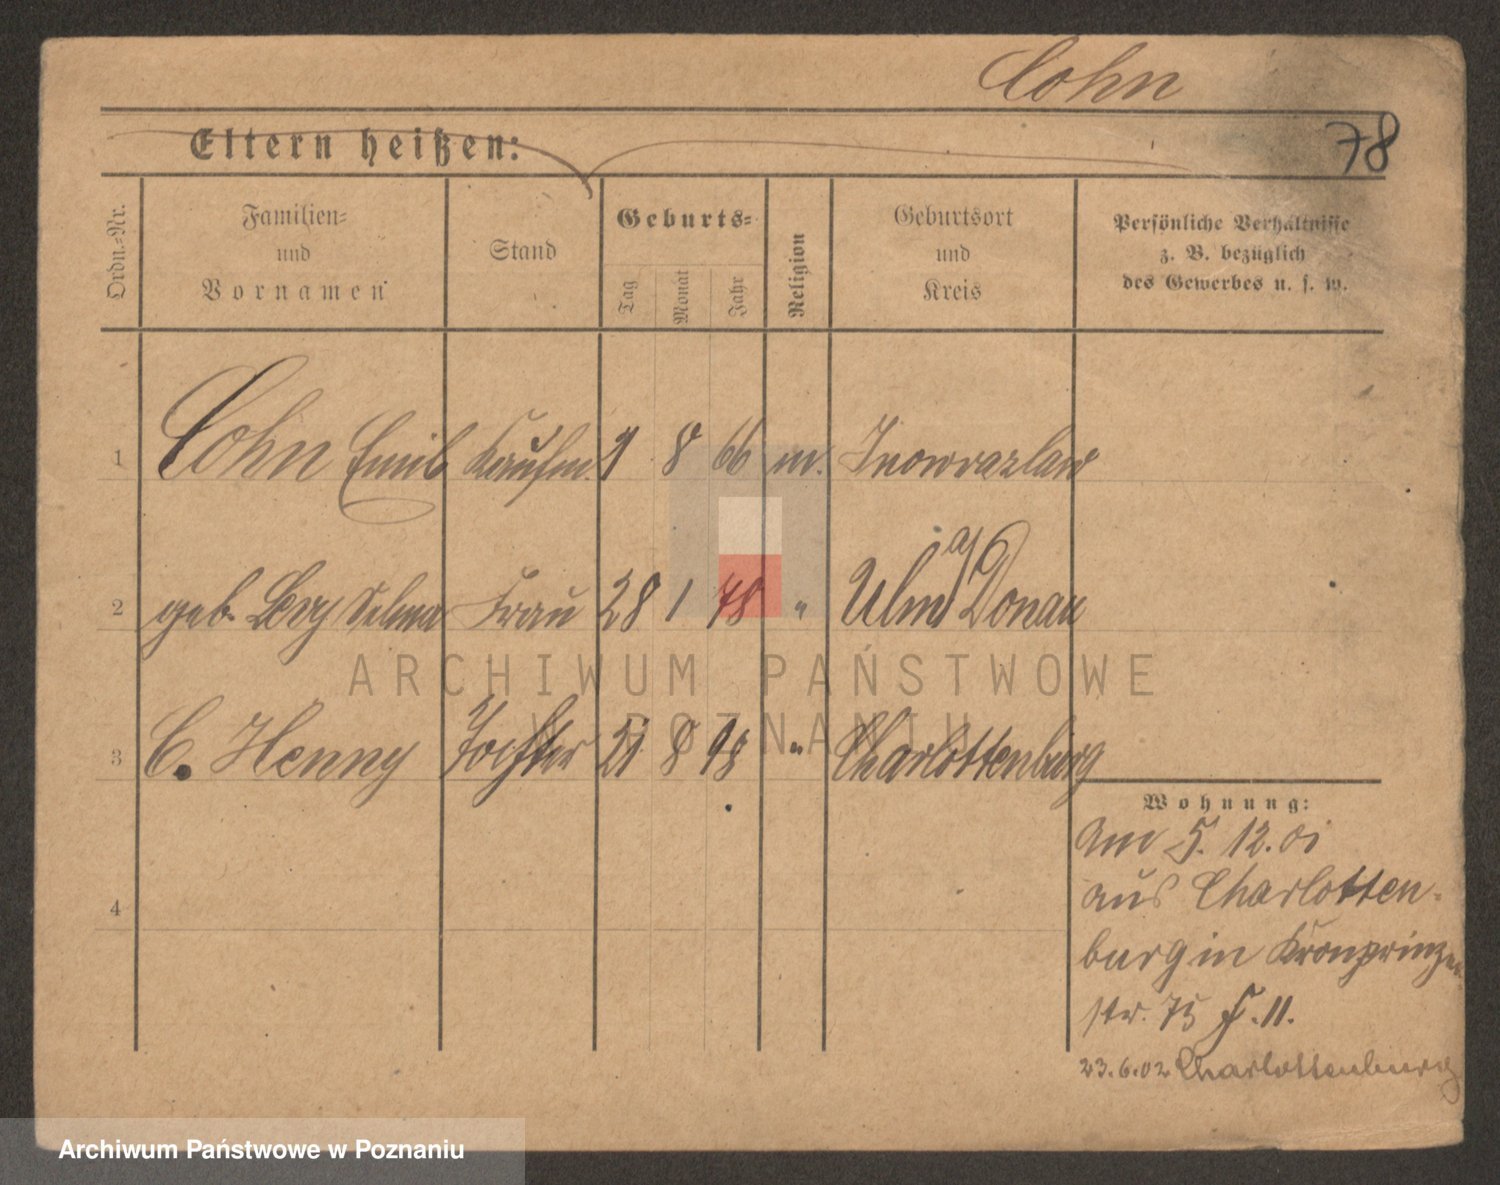 Cohn
78
Eltern heißen:
Ordn.=Nr.
Familien=
und
Vornamen
Stand
Geburts=
Tag
Monat
Jahr
Religion
Geburtsort
und
Kreis
Persönliche Verhältnisse
z. B. bezüglich
des Gewerbes u. s. w.
1 Cohn Emil Kaufm. 8 66 m. Inowrazlaw
2 geb. Selma Frau 28 1 78 " Ulm a/ Donau
3 C. Henny Tochter 21 8 98 " Charlottenburg
4
ARCHIWUM PAŃSTWOWE
W POZNANIU
Wohnung:
Am 5. 12. 01
aus Charlotten-
burg in Kronprinzen
str. 75 II.
23.6.02 Charlottenburg
Archiwum Państwowe w Poznaniu